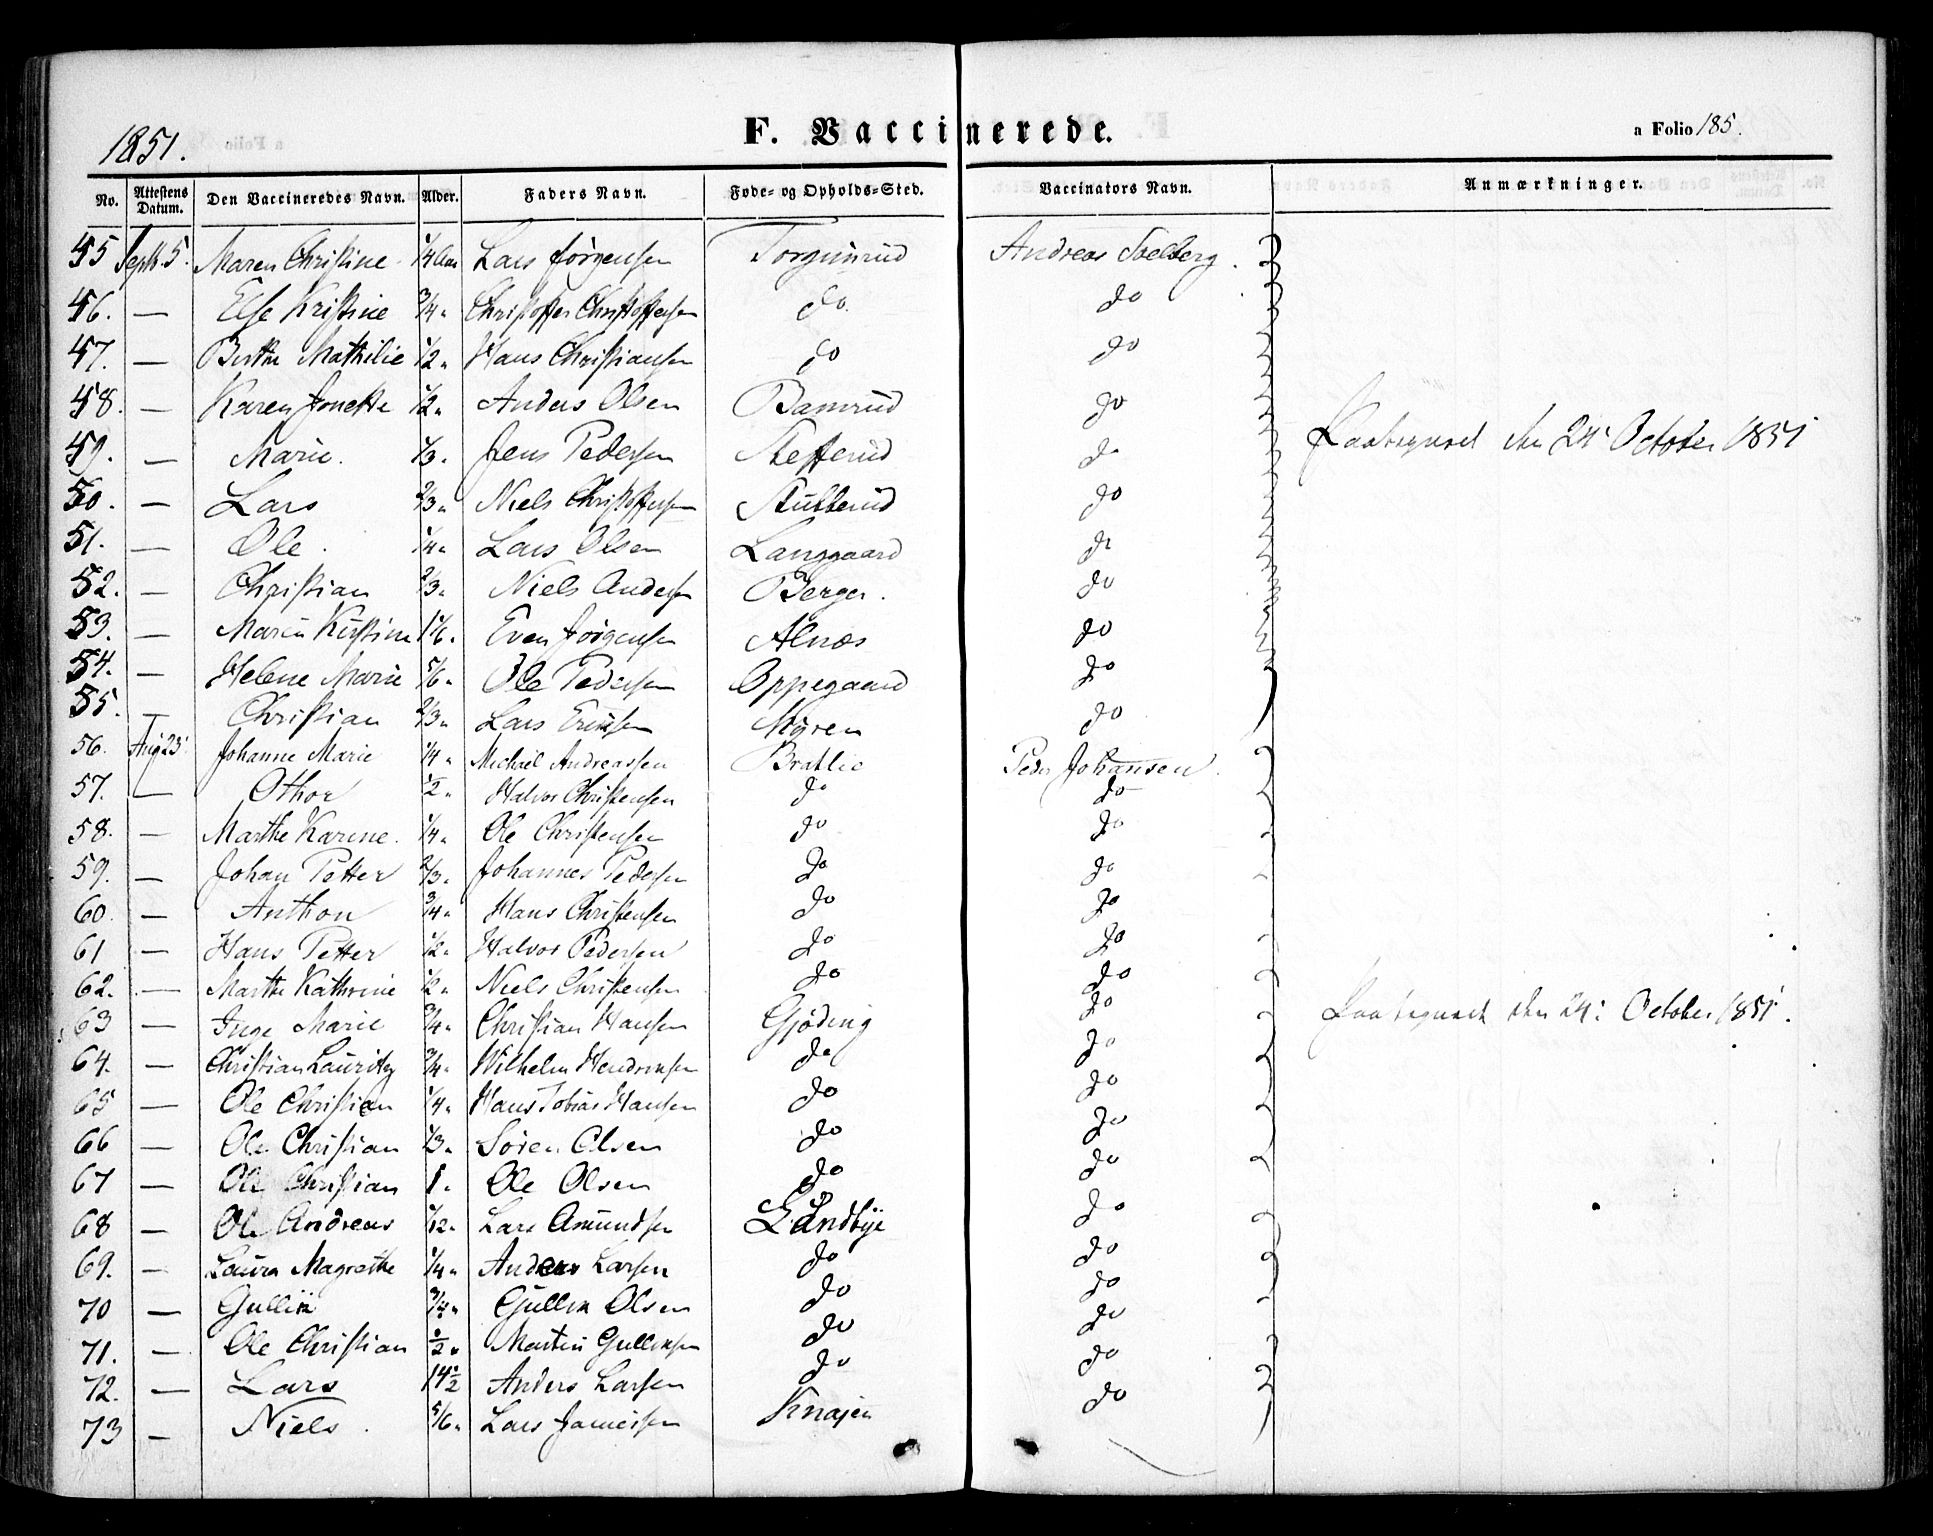 1851. F. Vaccinerede. a Folio 185.
No. Attestens Datum. Den Vaccineredes Navn. Alder. Faders Navn. Føde- og Opholds-Sted. Vaccinators Navn. Anmærkninger.
45 Septb. 5. Maren Christine 1/4 Aar Lars Jørgensen Torgunrud Andreas
46. — Else Kristine 3/4 " Christoffer Christoffersen do. do
47. — Berthe Mathilie 1/2 " Hans Christiansen do do
48. — Karen Jonette 1/2 " Anders Olsen Bamrud do
49. — Marie. 1/3 " Jens Pedersen Stefferud do den 24 October 1851
50. — Lars 2/3 " Niels Christoffersen Stubberud do
51. — Ole. 1/4 " Lars Olsen Langgaard do
52. — Christian 2/3 " Niels Andersen Berger. do
53. — Maren Kirstine 1 1/6 " Even Jørgensen Alnæs do
54. — Helene Marie 5/6 " Ole Pedersen Oppegaard do
55. — Christian 2/3 " Lars Eriksen Myren do
56. Aug 25. Johanne Marie 1/4 " Michael Andreassen Bratlie Peder Johansen.
57. — Othor 1/2 " Halvor Christensen do do
58. — Marthe Karine. 1/4 " Ole Christensen do do
59. — Johan Petter 2/3 " Johannes Pedersen do do
60. — Anthon 3/4 " Hans Christensen do do
61 — Hans Petter 1/2 " Halvor Pedersen do do
62. — Marthe Kathrine 1/2 " Niels Christensen do do
63 — Inge Marie 3/4 " Christian Hansen Gjøding do den 24. October 1851.
64. — Christian Lauritz 3/4 " Wilhelm Hendriksen do do
65 — Ole Christian 1/4 " Hans Tobias Hansen do do
66 — Ole Christian 1/3 " Søren Olsen do do
67 — Ole Christian 1 " Ole Olsen do do
68 — Ole Andreas 7/12 " Lars Amundsen Sandbye do
69. — Laura Magrethe 1/4 " Anders Larsen do do
70 — Gullik 3/4 " Gullik Olsen do do
71. — Ole Christian 1/2 " Martin Gulliksen do do
72. — Lars 14 1/2 Anders Larsen do do
73 — Niels. 5/6 " Lars Jamessen Knajen do